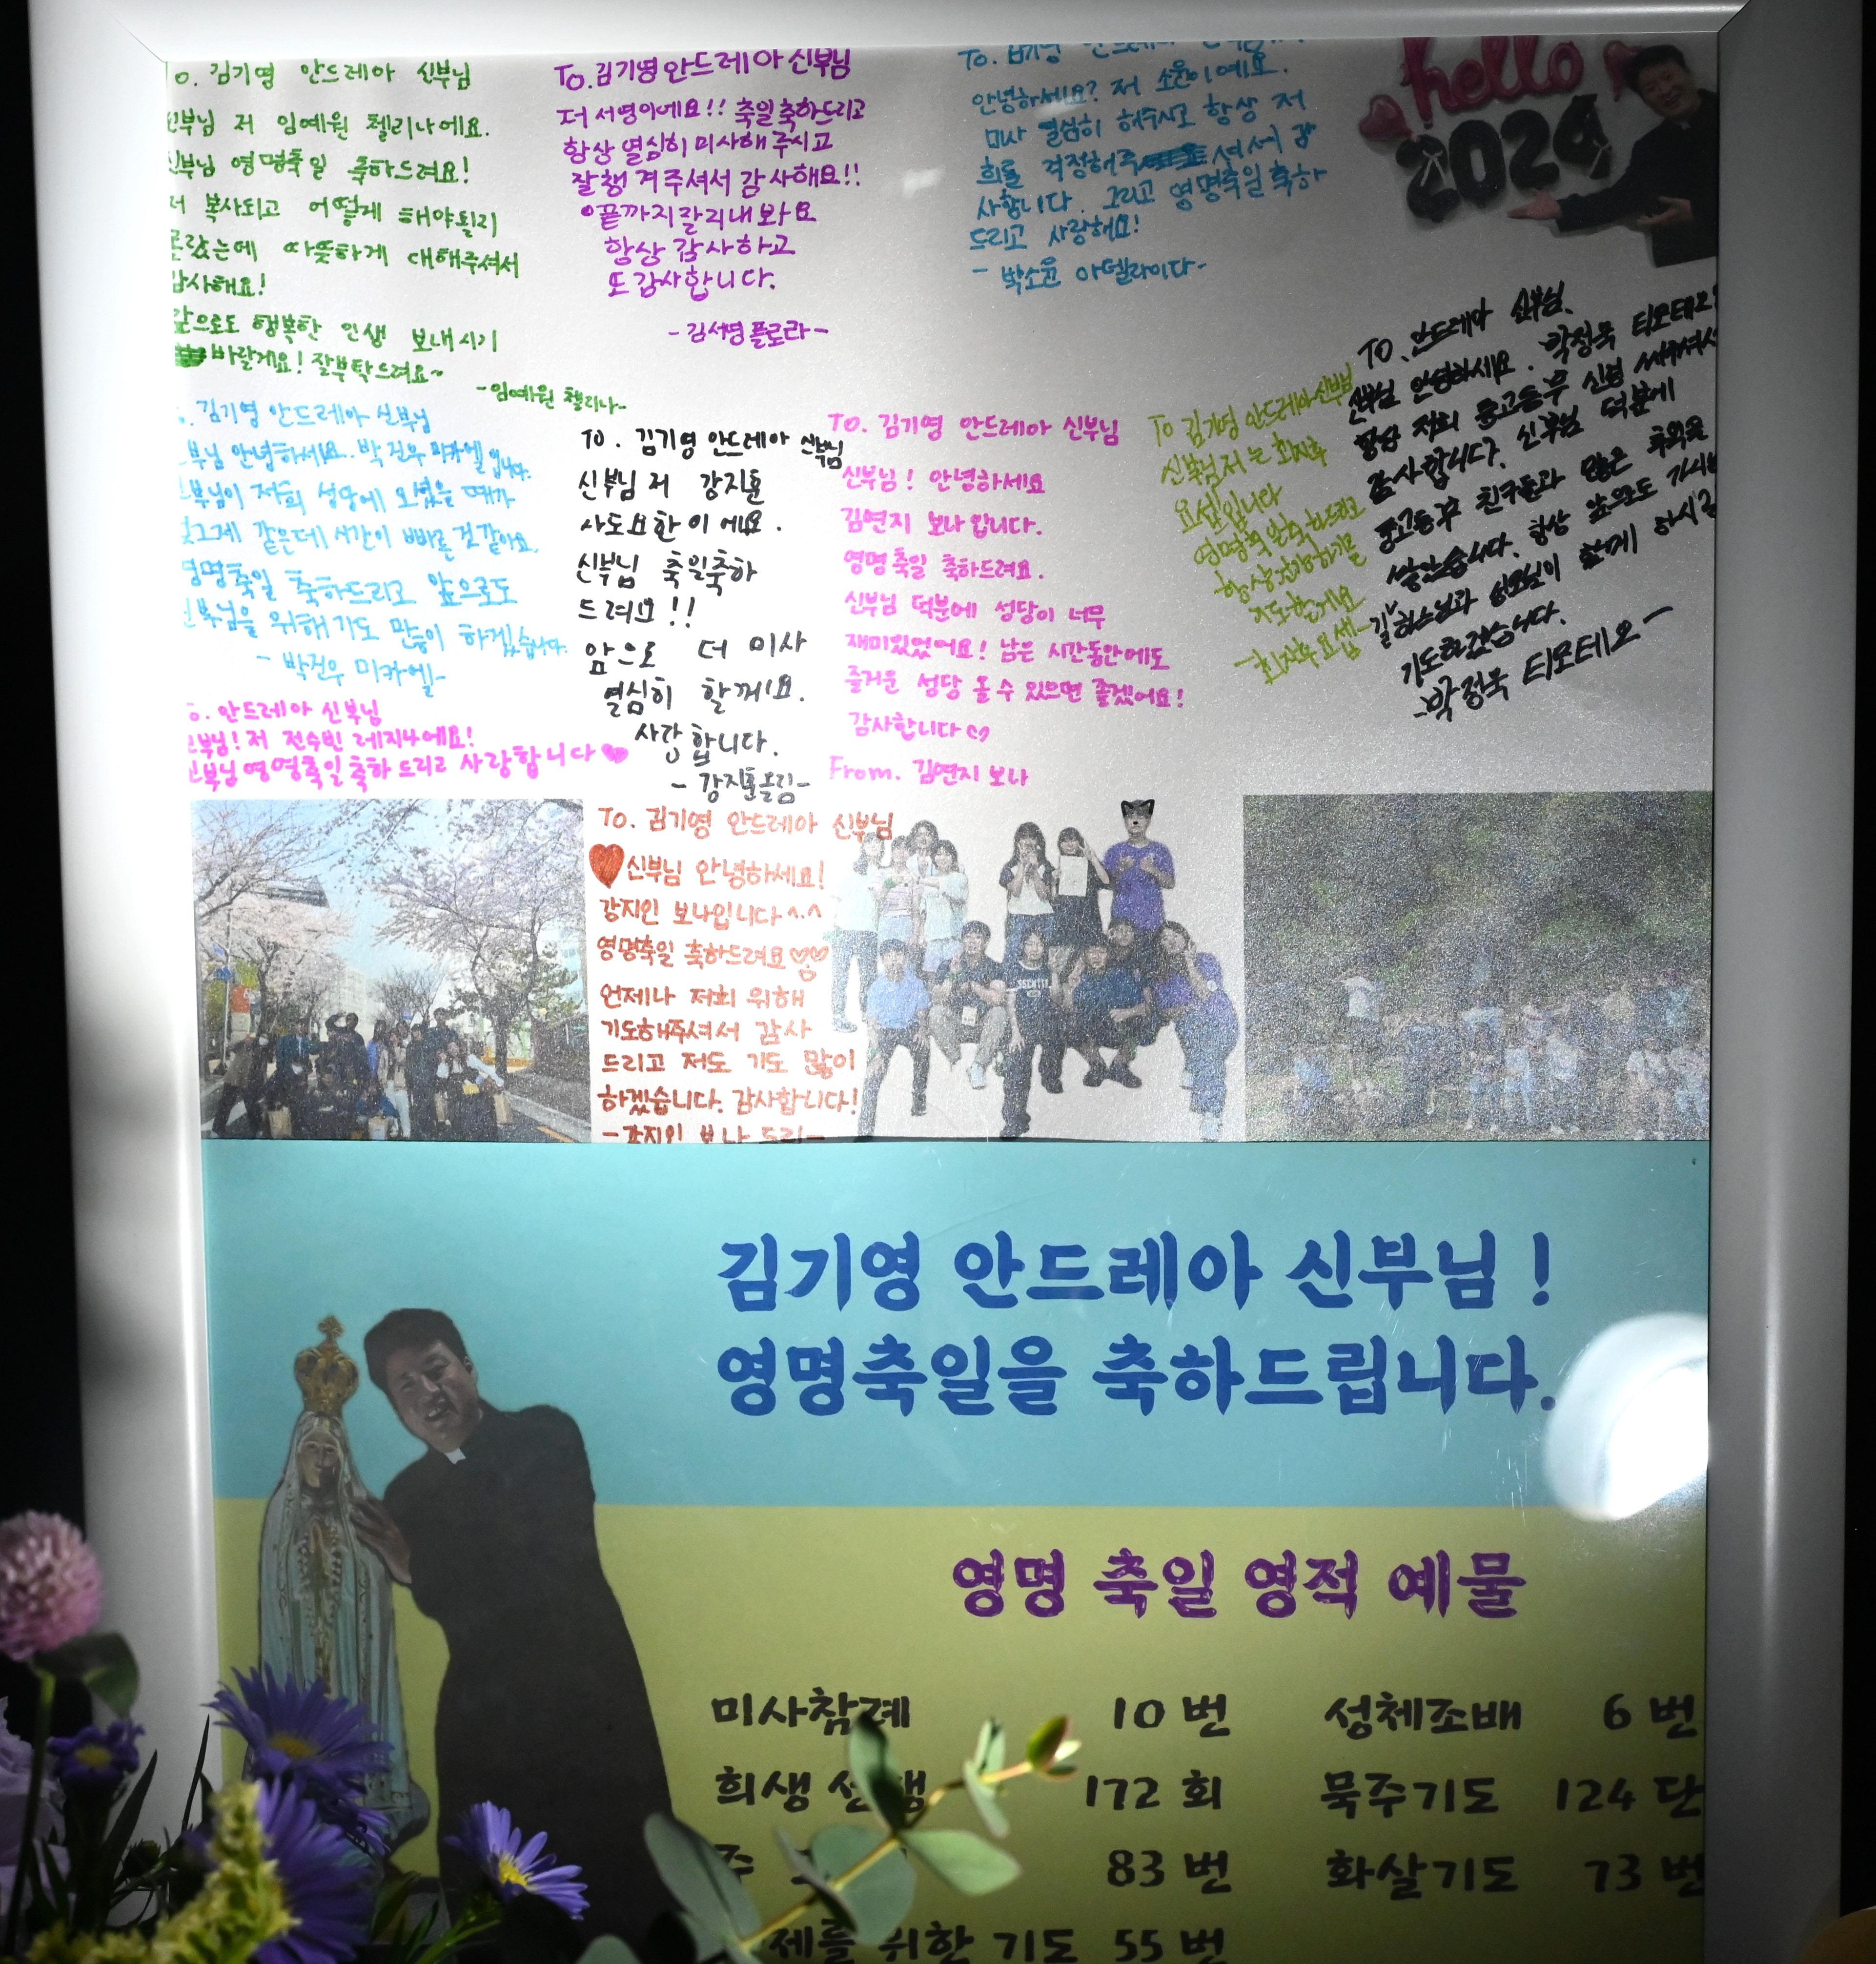 To. 김기영 안드레아 신부님
신부님 저 임예원 첼리나에요.
신부님 영명축일 축하드려요!
저 복사되고 어떻게 해야될지
몰랐는데 따뜻하게 대해주셔서
감사해요!
앞으로도 행복한 인생 보내시기
바랄게요! 잘부탁드려요~
-임예원 첼리나-
To. 김기영 안드레아 신부님
저 서영이에요!! 축일축하드리고
항상 열심히 미사해 주시고
잘챙겨주셔서 감사해요!!
끝까지 잘지내봐요
항상 감사하고
또 감사합니다.
-김서영 플로라-
To. 김기영 안드레아
안녕하세요? 저 소윤이에요.
미사 열심히 해주시고 항상 저
희를 걱정해주셔서 감
사합니다. 그리고 영명축일 축하
드리고 사랑해요!
- 박소윤 아델라이다-
hello
2024
TO. 안드레아 신부님.
신부님 안녕하세요. 박정욱 티모테오
항상 저희 중고등부 신경 써주셔서
감사합니다. 신부님 덕분에
중고등부 친구들과 많은 추억을
쌓았습니다. 항상 앞으로도 가시는
길 하느님과 성모님이 함께 하시길
기도하겠습니다.
-박정욱 티모테오-
김기영 안드레아 신부님
신부님 안녕하세요. 박건우 미카엘 입니다.
신부님이 저희 성당에 오셨을 때가
엊그제 같은데 시간이 빠른 것 같아요.
영명축일 축하드리고 앞으로도
신부님을 위해 기도 많이 하겠습니다.
- 박건우 미카엘-
To. 김기영 안드레아 신부님
신부님 저 강지훈
사도요한이에요.
신부님 축일축하
드려요!!
앞으로 더 미사
열심히 할께요.
사랑합니다.
- 강지훈올림-
To. 김기영 안드레아 신부님
신부님! 안녕하세요
김연지 보나입니다.
영명축일 축하드려요.
신부님 덕분에 성당이 너무
재미있었어요! 남은 시간동안에도
즐거운 성당 올 수 있으면 좋겠어요!
감사합니다♡
From. 김연지 보나
To 김기영 안드레아신부님
신부님 저는
요셉입니다
영명축일축하드리고
항상 건강하기를
기도할게요
To. 안드레아 신부님
신부님! 저 전수빈 레지나에요!
신부님 영명축일 축하드리고 사랑합니다♥
To. 김기영 안드레아 신부님
♥신부님 안녕하세요!
강지인 보나입니다^.^
영명축일 축하드려요♡♡
언제나 저희 위해
기도해주셔서 감사
드리고 저도 기도 많이
하겠습니다. 감사합니다!
-강지인 보나 드림-
김기영 안드레아 신부님!
영명축일을 축하드립니다.
영명 축일 영적 예물
미사참례 10 번 성체조배 6 번
희생 172 회 묵주기도 124 단
주 83 번 화살기도 73 번
제를 위한 기도 55 번